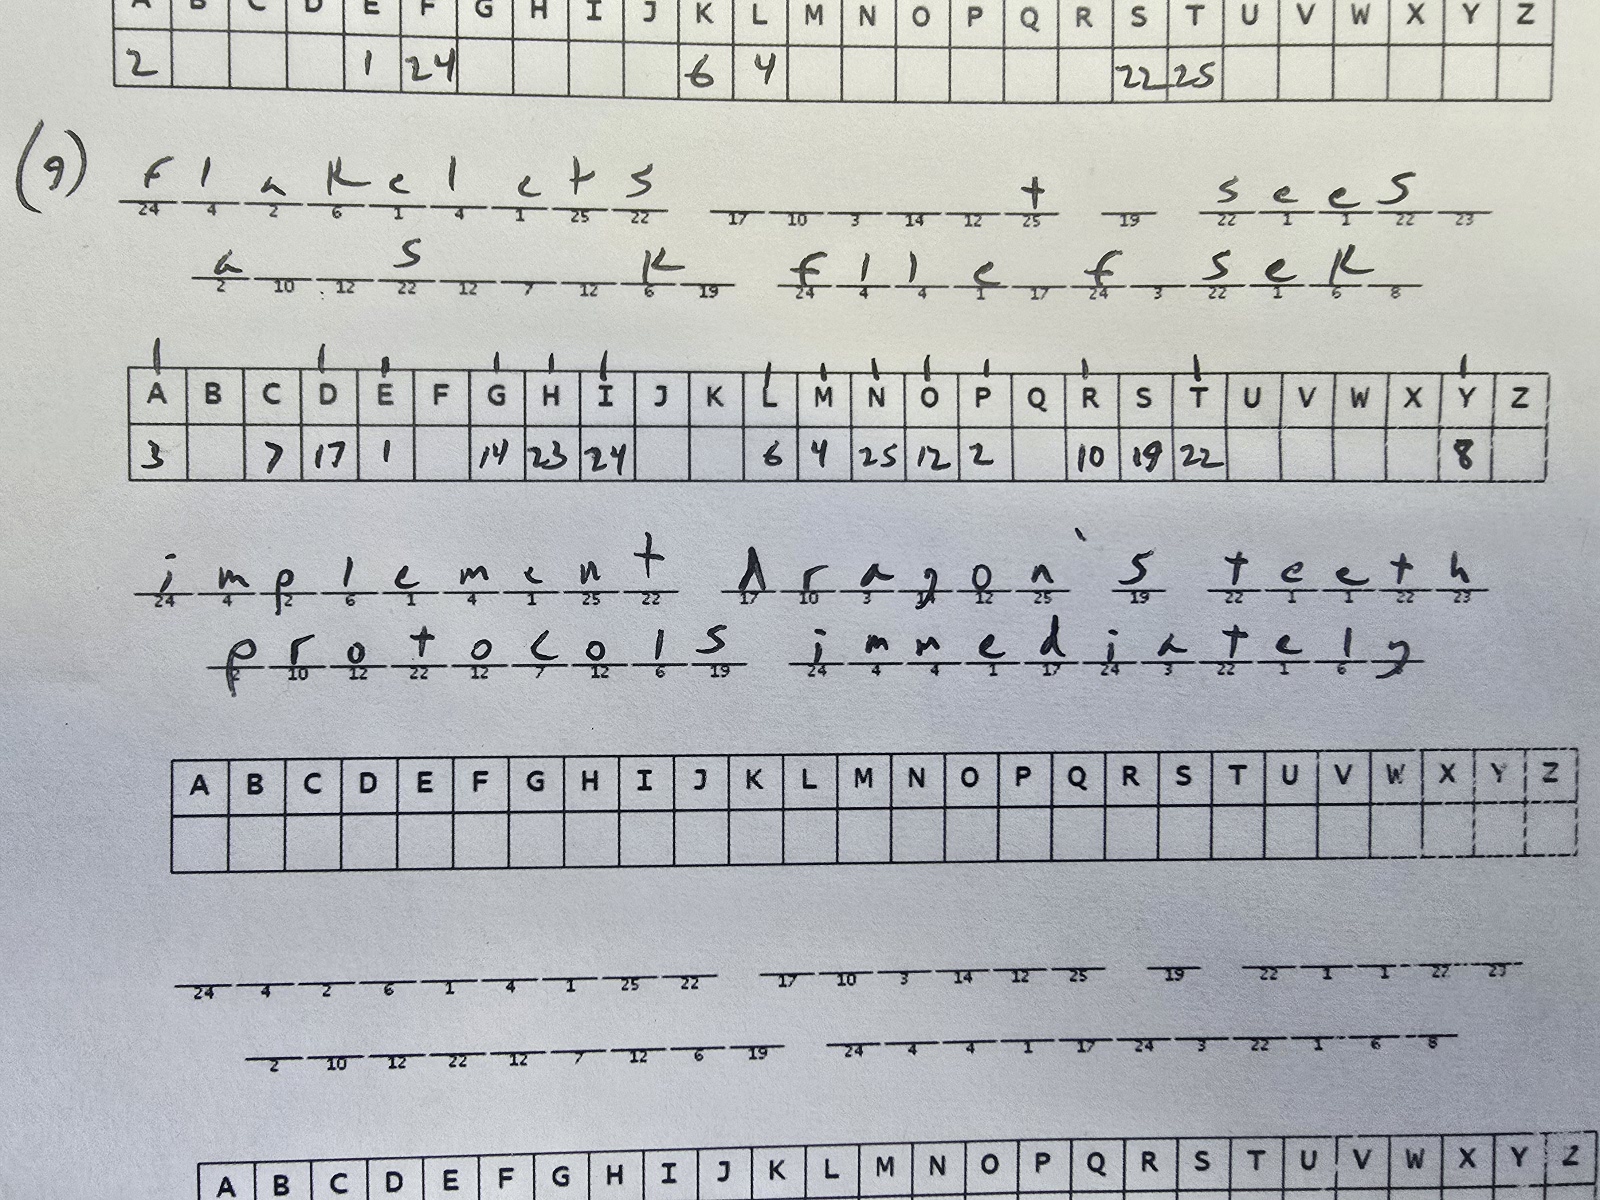 A B C D E F G H I J K L M N O P Q R S T U V W X Y Z
2 1 24 6 4 22 25
(9) f l a k e l e t s t s e e s
24 4 2 6 1 4 1 25 22 17 10 3 14 12 25 19 22 1 1 22 23
a s k f l l e f s e k
2 10 12 22 12 7 12 6 19 24 4 4 1 17 24 3 22 1 6 8
A B C D E F G H I J K L M N O P Q R S T U V W X Y Z
3 7 17 1 14 23 24 6 4 25 12 2 10 19 22 8
i m p l e m e n t d r a g o n ' s t e e t h
24 4 2 6 1 4 1 25 22 17 10 3 14 12 25 19 22 1 1 22 23
p r o t o c o l s i m m e d i a t e l y
2 10 12 22 12 7 12 6 19 24 4 4 1 17 24 3 22 1 6
A B C D E F G H I J K L M N O P Q R S T U V W X Y Z
24 4 2 6 1 4 1 25 22 17 10 3 14 12 25 19 22 1 1 22 23
2 10 12 22 12 7 12 6 19 24 4 4 1 17 24 3 22 1 6 8
A B C D E F G H I J K L M N O P Q R S T U V W X Y Z